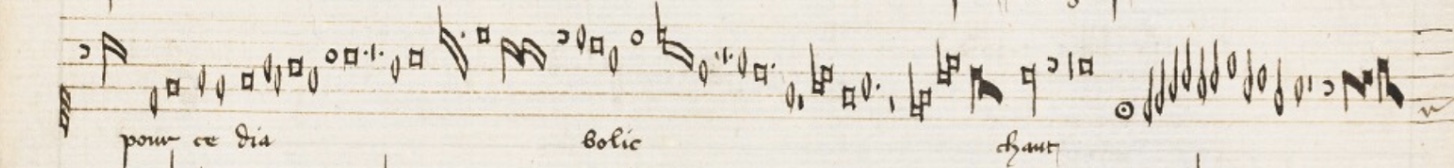 pour ce dia bolic chant